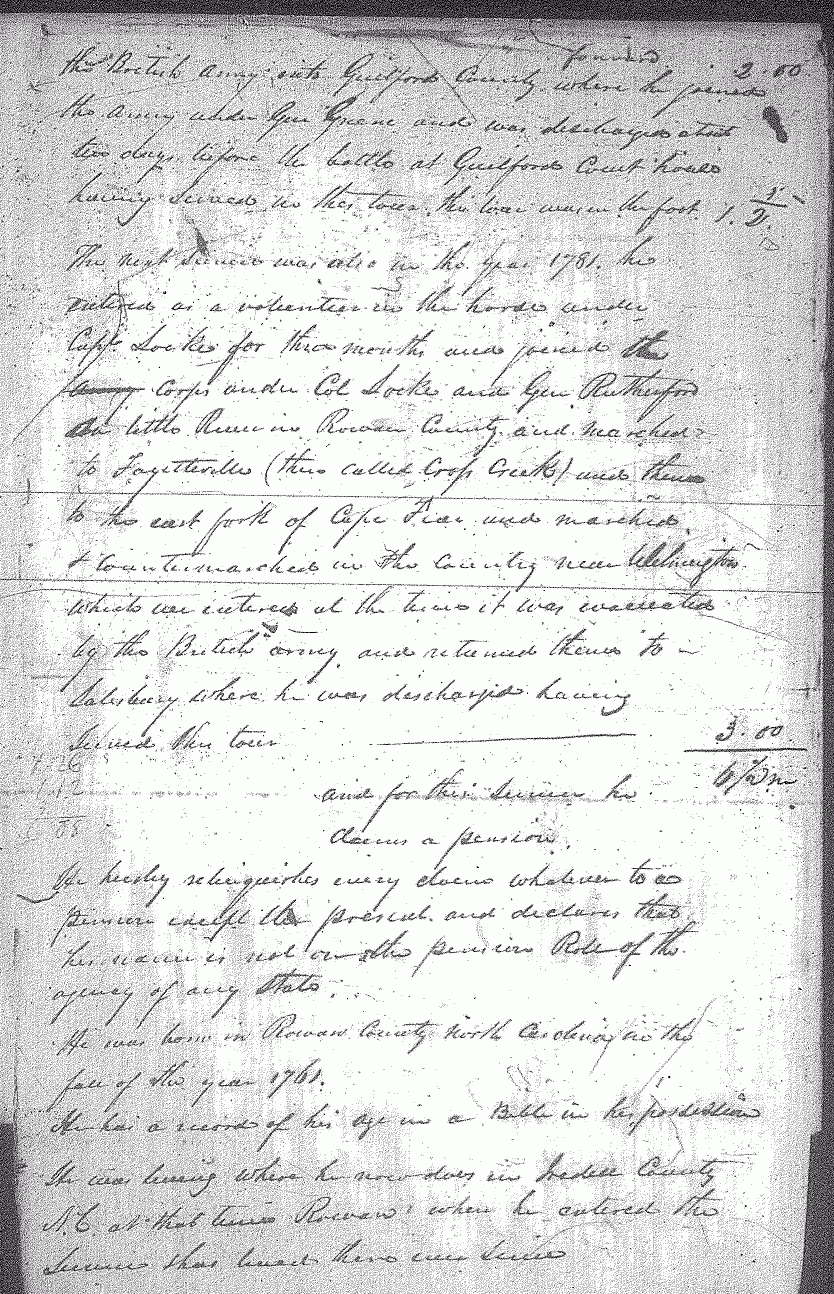 forward 2.00
the British army into Guilford County where he joined
the army under Gen Greene and was discharged about
two days before the battle at Guilford Court house
having served in this tour. this tour was in the foot 1. 1/2
The next service was also in the year 1781. he
entered as a volunteer in the horse under
Capt. Locke for three months and joined the
army corps under Col Locke and Gen Rutherford
on little River in Rowan County and marched
to Fayetteville (then called Cross Creek) and thence
to the east fork of Cape Fear and marched
& countermarched in the country near Wilmington
which we entered at the time it was evacuated
by the British army and returned thence to
Salisbury where he was discharged having
served this tour 3.00
6 1/2 m
and for this service he
claims a pension.
He hereby relinquishes every claim whatever to a
pension except the present. and declares that
his name is not on the pension Role of the
agency of any State.
He was born in Rowan County North Carolina in the
fall of the year 1761.
He has a record of his age in a Bible in his possession
He was living where he now does in Iredell County
N.C. at that time Rowan when he entered the
service & has lived there ever since